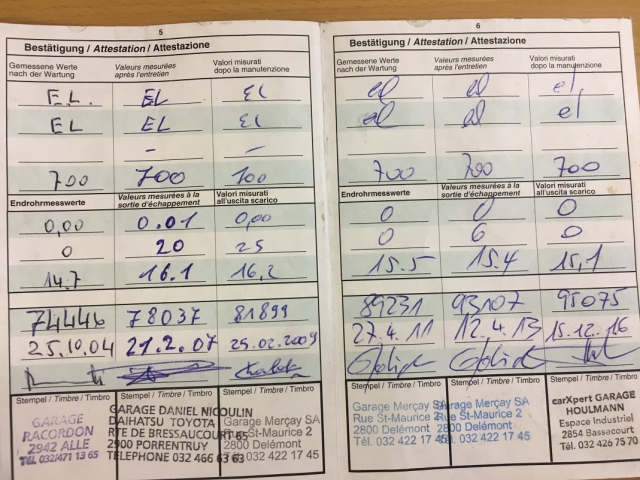 5
Bestätigung / Attestation / Attestazione
Gemessene Werte nach der Wartung
Valeurs mesurées après l'entretien
Valori misurati dopo la manutenzione
E.L. EL EL
EL EL EL
- -
700 700 700
Endrohrmesswerte
Valeurs mesurées à la sortie d'échappement
Valori misurati all'uscita scarico
0,00 0.01 0,00
0 20 25
14.7 16.1 16,2
74446 78037 81899
25.10.04 21.2.07 25.02.2009
Stempel / Timbre / Timbro Stempel / Timbre / Timbro Stempel / Timbre / Timbro
GARAGE
RACORDON
2942 ALLE
TÉL. 032/471 13 65
GARAGE DANIEL NICOULIN
DAIHATSU TOYOTA
RTE DE BRESSAUCOURT 65
2900 PORRENTRUY
TELEPHONE 032 466 63 63
Garage Merçay SA
Rue St-Maurice 2
2800 Delémont
Tél. 032 422 17 45
6
Bestätigung / Attestation / Attestazione
Gemessene Werte nach der Wartung
Valeurs mesurées après l'entretien
Valori misurati dopo la manutenzione
el el el
el el el
700 700 700
Endrohrmesswerte
Valeurs mesurées à la sortie d'échappement
Valori misurati all'uscita scarico
0 0 0
0 6 0
15.5 15.4 15,1
89231 93107 95075
27.4.11 12.4.13 15.12.16
Stempel / Timbre / Timbro Stempel / Timbre / Timbro Stempel / Timbre / Timbro
Garage Merçay SA
Rue St-Maurice 2
2800 Delémont
Tél. 032 422 17 45
Garage Merçay SA
Rue St-Maurice 2
2800 Delémont
Tél. 032 422 17 45
carXpert GARAGE
HOULMANN
Espace Industriel
2854 Bassecourt
Tél. 032 426 75 70